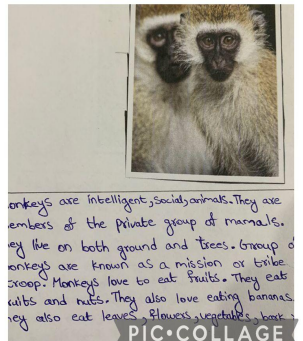 onkeys are intelligent, Social, animals. They are
embers of the Private group of mamals.
ey live on both ground and trees. Group o
onkeys are known as a mission or tribe
troop. Monkeys love to eat fruits. They eat
ruits and nuts. They also love eating bananas.
hey also eat leaves, flowers, vegetables, bark,
PIC•COLLAGE